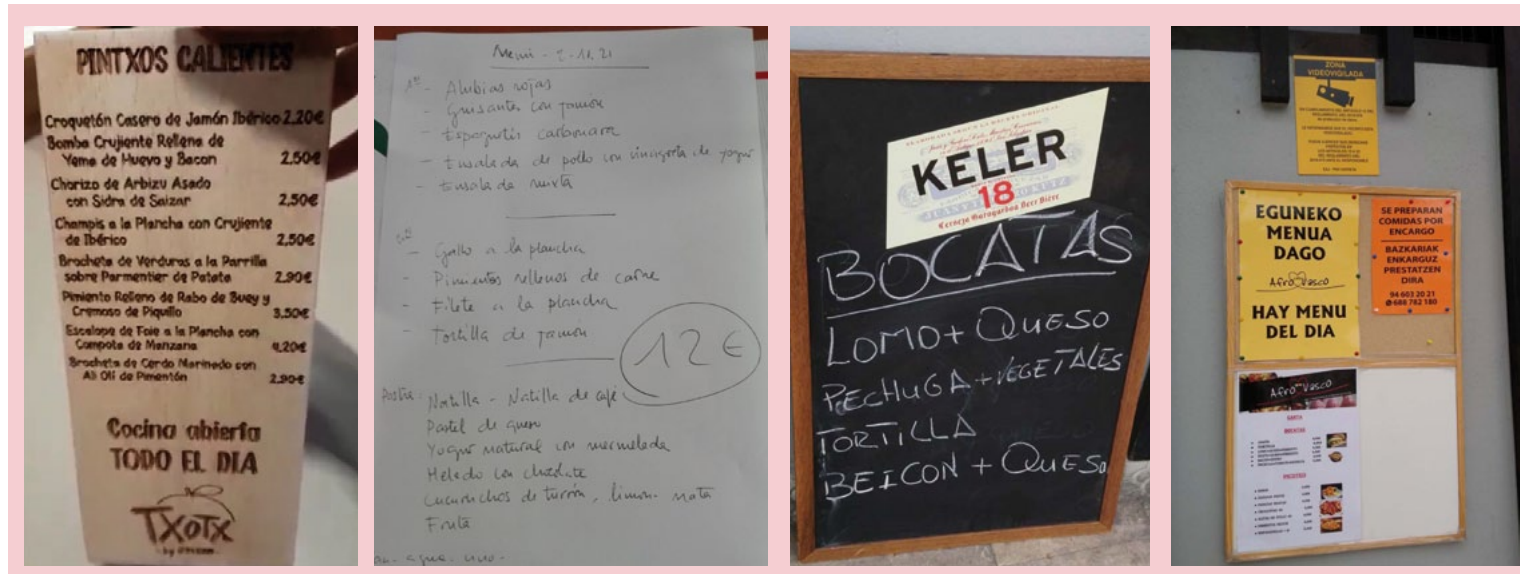 PINTXOS CALIENTES
Croquetón Casero de Jamón Ibérico 2,20€
Bomba Crujiente Rellena de
Yema de Huevo y Bacon 2,50€
Chorizo de Arbizu Asado
con Sidra de Saizar 2,50€
Champis a la Plancha con Crujiente
de Ibérico 2,50€
Brocheta de Verduras a la Parrilla
sobre Parmentier de Patata 2,90€
Pimiento Relleno de Rabo de Buey y
Cremoso de Piquillo 3,50€
Escalope de Foie a la Plancha con
Compota de Manzana 4,20€
Brocheta de Cerdo Marinado con
Ali Oli de Pimentón 2,90€
Cocina abierta
TODO EL DIA
TXOTX
Menú - 2-11-21
1º - Alubias rojas
- Guisantes con jamón
- Espaguetis carbonara
- Ensalada de pollo con vinagreta de yogur
- Ensalada mixta
2º
- Gallo a la plancha
- Pimientos rellenos de carne
- Filete a la plancha
- Tortilla de jamón
12€
Postre - Natilla - Natilla de café
Pastel de queso
Yogur natural con mermelada
Helado con chocolate
Cucuruchos de turrón, limón, nata
Fruta
Pan - agua - vino -
KELER
18
Cerveza Garagardoa Beer Bière
BOCATAS
LOMO + QUESO
PECHUGA + VEGETALES
TORTILLA
BEICON + QUESO
ZONA
VIDEOVIGILADA
EGUNEKO
MENUA
DAGO
Afro Vasco
HAY MENU
DEL DIA
SE PREPARAN
COMIDAS POR
ENCARGO
BAZKARIAK
ENKARGUZ
PRESTATZEN
DIRA
94 603 20 21
688 782 180
Afro Vasco